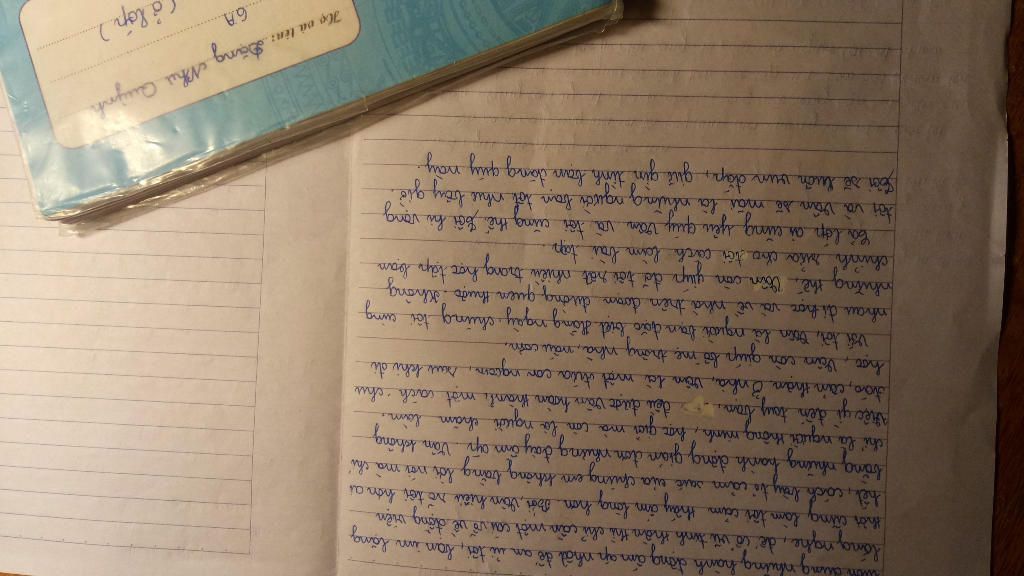 dùng những hành động ấm áp nhất để an ủi tôi, bạn im lặng
lắng nghe, để cổ vũ tinh thần tôi chỉ cần một cái vỗ về động viên
thôi cũng làm tôi cảm thấy ấm lòng hơn. Vân hiểu rõ tôi hơn ai
hết, cách bày tỏ cảm xúc của chúng em không bằng lời nói mà chỉ
bằng những hành động giản đơn nhưng đầy ấm áp. Vân không
chỉ là người thông minh, học giỏi mà còn là người chăm làm.
Việc gì đến tay bạn đều được Vân hoàn thành một cách chu
đáo, cẩn thận. Ở nhà, Vân là một đứa con ngoan, sau khi đi
học, Vân còn giúp bố mẹ trông nhà, nấu cơm.
Với tôi, Vân là người bạn đặc biệt. Hằng ngày chúng tôi cùng
nhau đi học và về nhà trên đoạn đường quen thuộc. Không
những thế, Vân còn giúp đỡ tôi rất nhiều trong học tập, bạn
chỉnh sửa cho tôi cách làm bài tập.
Cả lớp ai cũng yêu quý Vân và tôi cũng thế. Tôi hi vọng
tôi và Vân sẽ mãi là những người bạn tốt như bây giờ.
Tôi sẽ luôn vun đắp, giữ gìn tình bạn đáng quý này.
Họ và tên: Đặng Như Quỳnh
6A
(ở lớp)